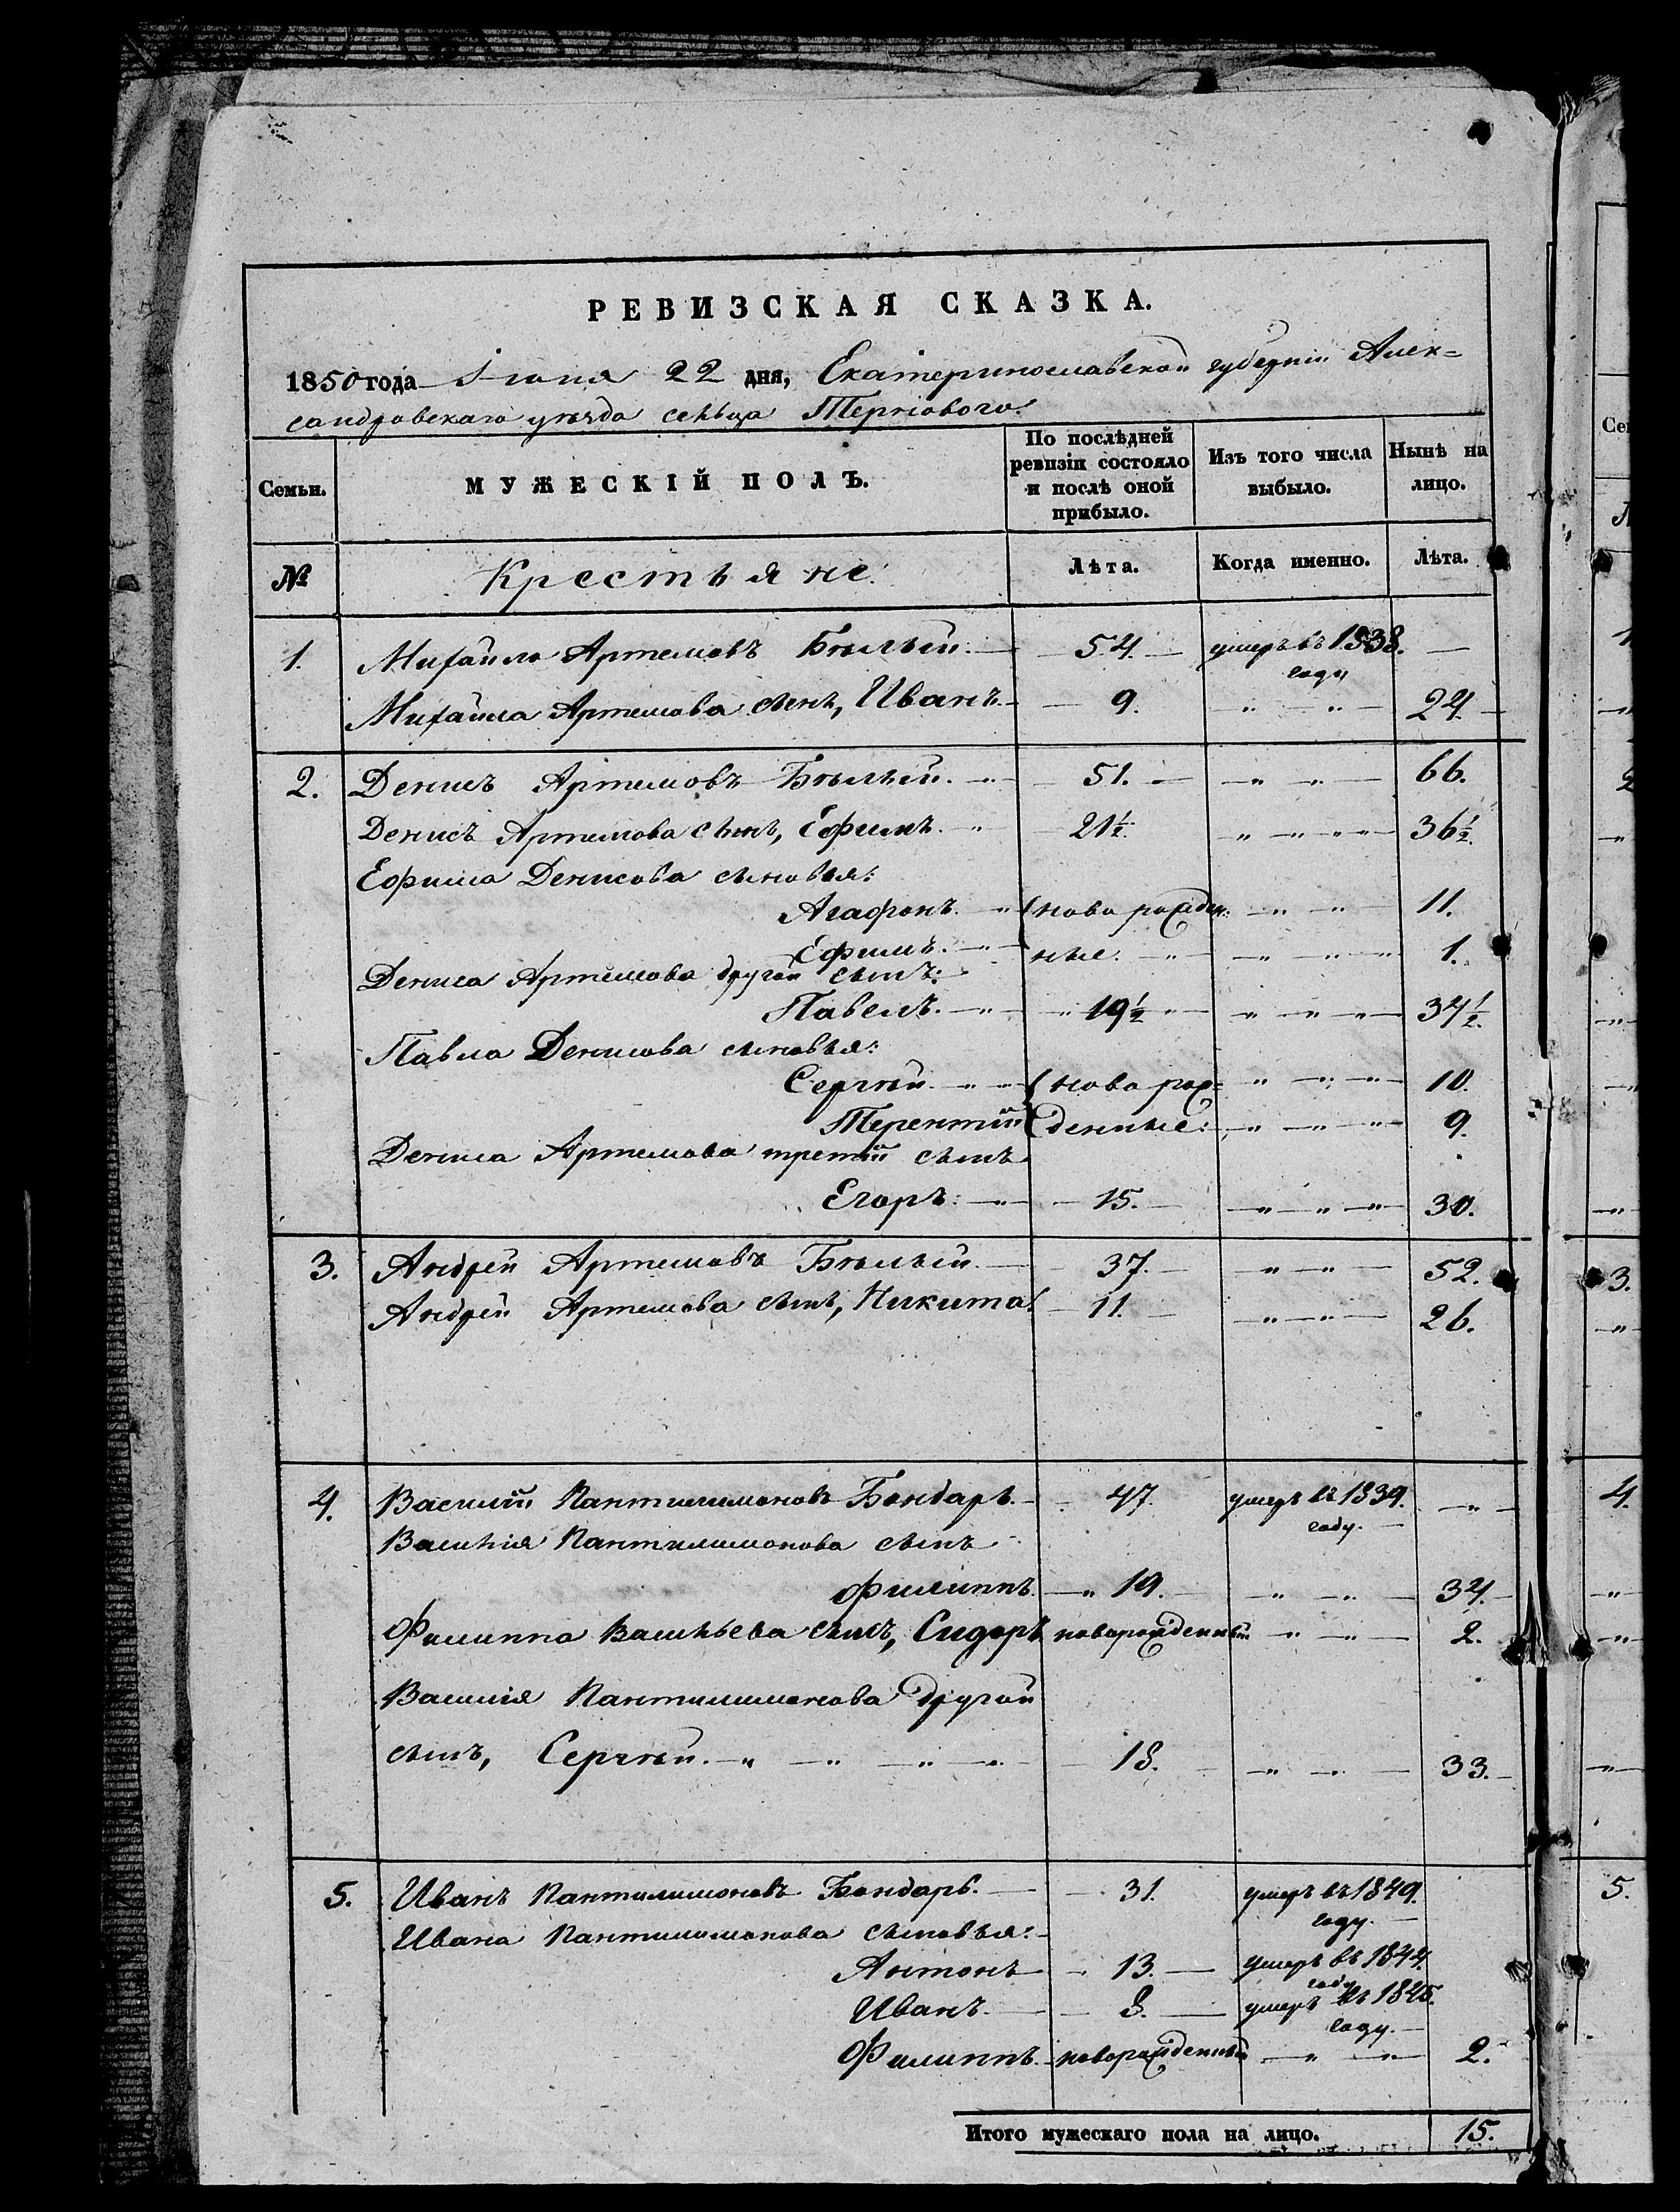 РЕВИЗСКАЯ СКАЗКА.
1850 года Іюня 22 дня, Екатеринославской губерніи Алек=
сандровскаго уѣзда сельца Терноваго.
Семьи.
МУЖЕСКІЙ ПОЛЪ.
По послѣдней ревизіи состояло и послѣ оной прибыло.
Изъ того числа выбыло.
Нынѣ на лицо.
№ Крестьяне. Лѣта. Когда именно. Лѣта.
1. Михайло Артемовъ Бѣлый. 54. умеръ въ 1838. году
Михайла Артемова сынъ, Иванъ. 9. 24.
2. Денисъ Артемовъ Бѣлый. 51. 66.
Денисъ Артемова сынъ, Ефимъ. 21½. 36½.
Ефима Денисова сыновья:
Агафонъ. (ново рожден: 11.
Ефимъ. ные. 1.
Дениса Артемова другой сынъ:
Павелъ. 19½ 34½.
Павла Денисова сыновья:
Сергѣй. (ново рож= 10.
Терентій (денные: 9.
Дениса Артемова третій сынъ
Егоръ. 15. 30.
3. Андрей Артемовъ Бѣлый. 37. 52.
Андрей Артемова сынъ, Никита. 11. 26.
4. Василій Пантилимоновъ Бондарь. 47. умеръ въ 1839. году.
Василія Пантилимонова сынъ
Филиппъ. 19. 34.
Филиппа Васильева сынъ, Сидоръ новорожденный 2.
Василія Пантилимонова другой
сынъ, Сергѣй. 18. 33.
5. Иванъ Пантилимоновъ Бондарь. 31. умеръ въ 1849. году.
Ивана Пантилимонова сыновья:
Антонъ 13. умеръ въ 1844. году
Иванъ. 8. умеръ въ 1845. году.
Филиппъ. новорожденный 2.
Итого мужескаго пола на лицо. 15.
Се
1
2
3.
4.
5.